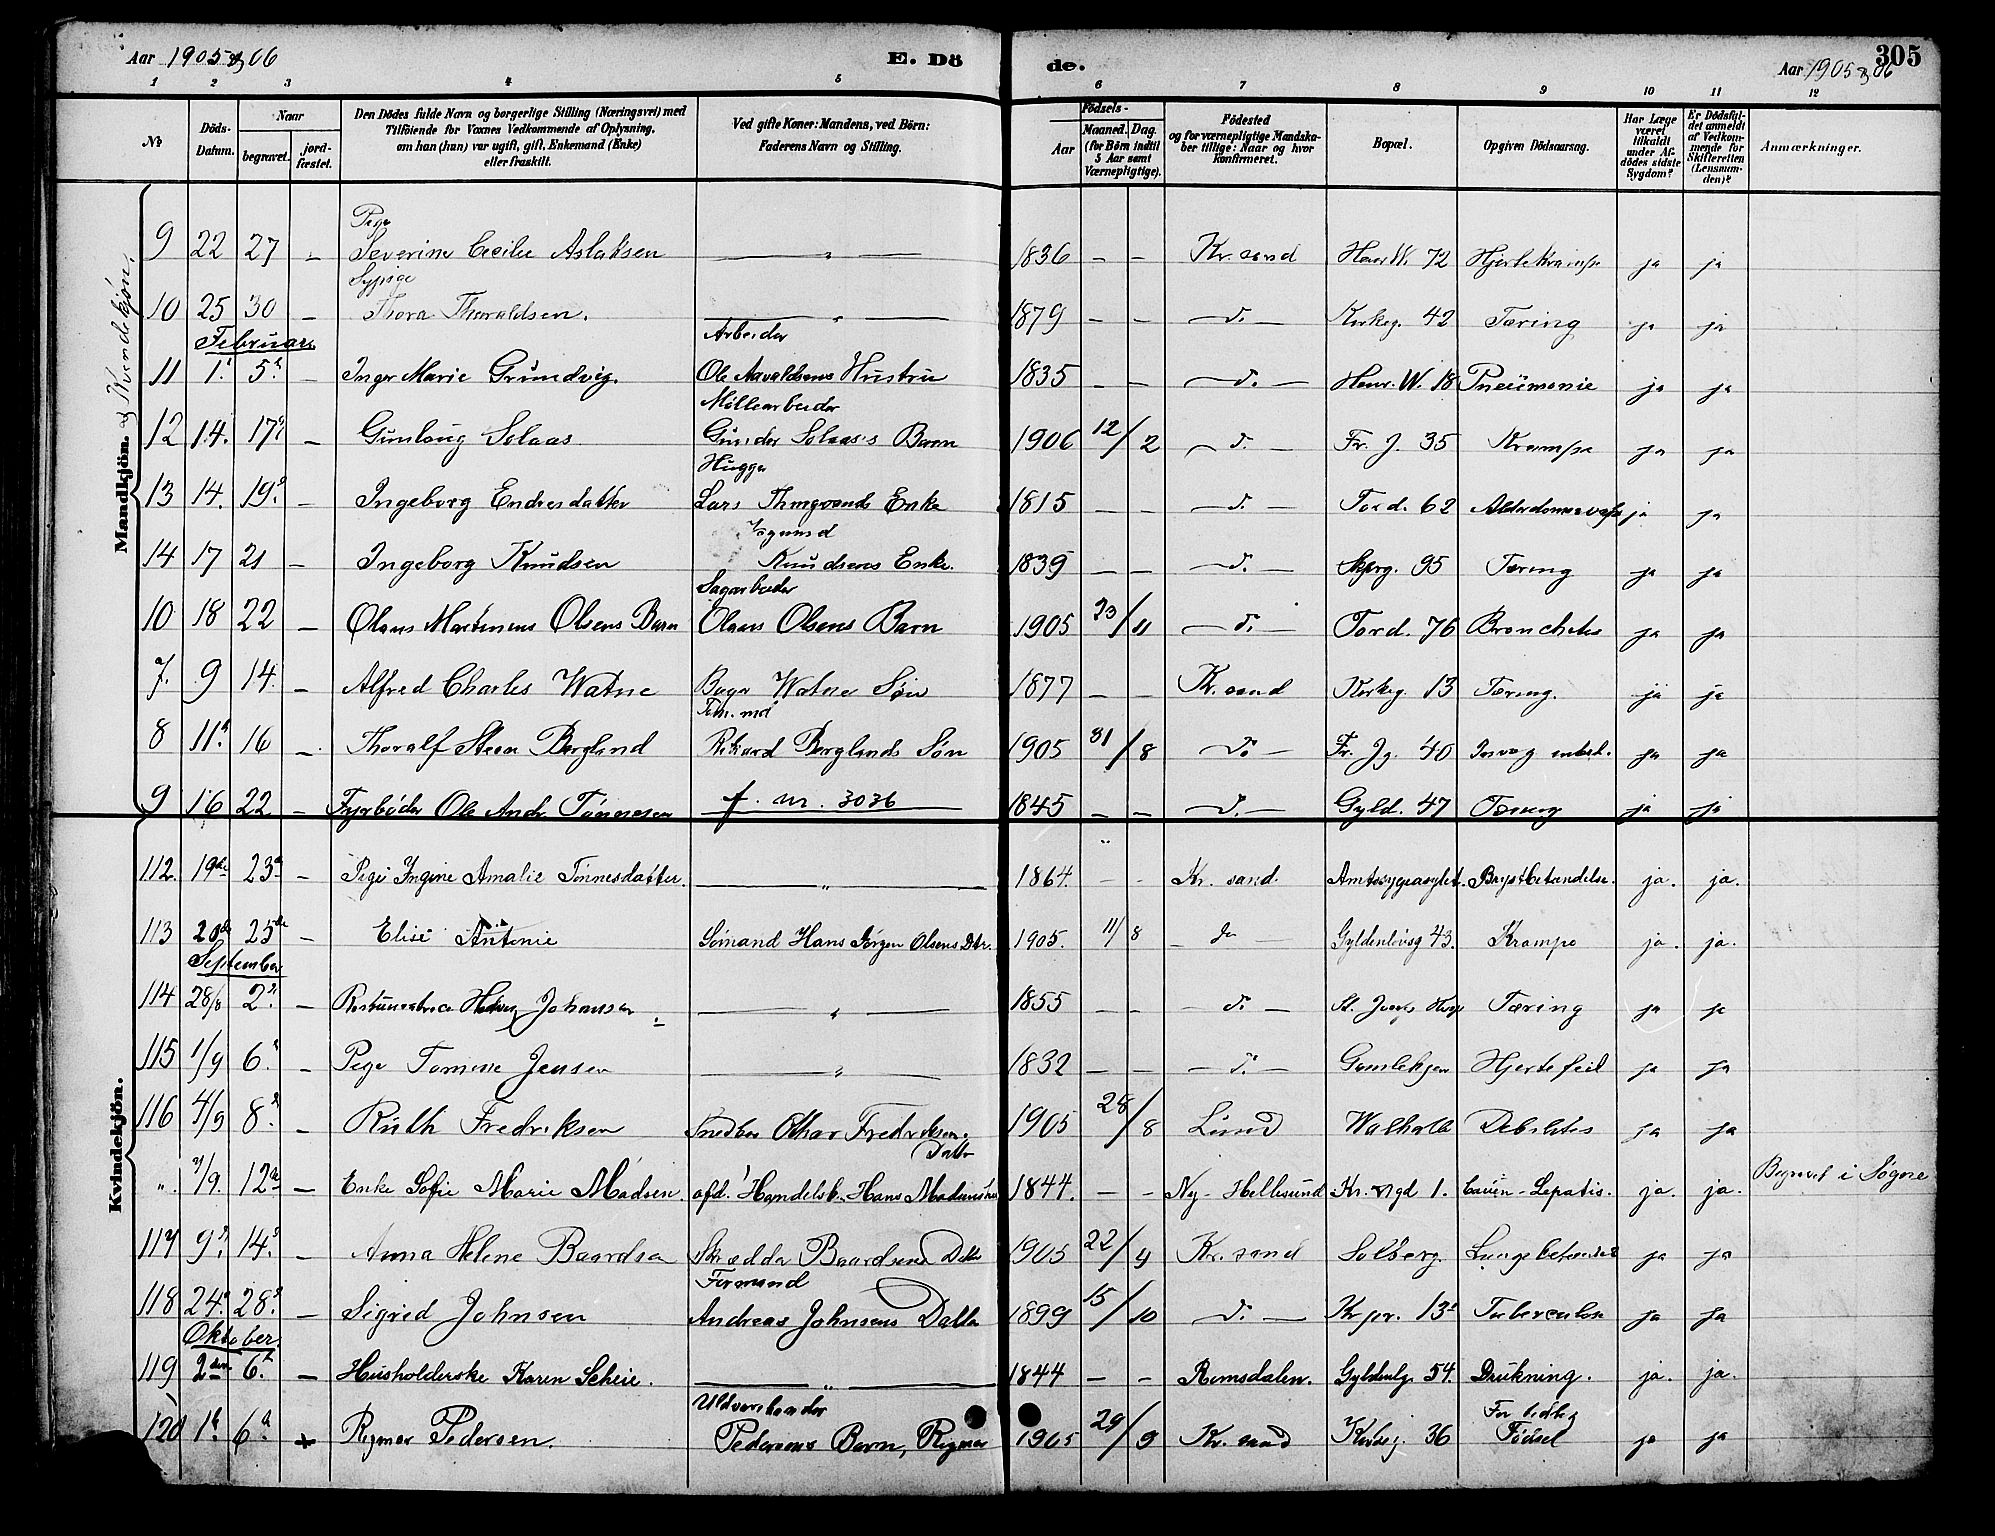 Aar 1905 og 06
E. Dö
de.
Aar 1905 og 06
305
1 2 3 4 5 6 7 8 9 10 11 12
№
Döds-Datum.
Naar
begravet.
jord-fæstet.
Den Dödes fulde Navn og borgerlige Stilling (Næringsvei) med
Tilföiende for Voxnes Vedkommende af Oplysning,
om han (hun) var ugift, gift, Enkemand (Enke)
eller fraskilt.
Ved gifte Koner: Mandens, ved Börn:
Faderens Navn og Stilling.
Födsels-
Aar
Maaned. Dag.
(for Börn indtil
5 Aar samt
Værnepligtige).
Födested
og for værnepligtige Mandska-
ber tillige: Naar og hvor
konfirmeret.
Bopæl.
Opgiven Dödsaarsag.
Har Læge
været
tilkaldt
under Af-
dödes sidste
Sygdom?
Er Dödsfal-
det anmeldt
af Vedkom-
mende for
Skifteretten
(Lensman-
den)?
Anmærkninger.
Mandkjön. og Kvindekjøn.
Pige
9 22 27 - Severine Cecilie Aslaksen — " — 1836 - - Kr.sand Henr. W. 72 Hjertekrampe ja ja
Sypige
10 25 30 - Thora Thoraldsen. — " — 1879 - - do. Kirkeg. 42 Tæring ja ja
Februar
Arbeider
11 1. 5. - Inger Marie Grundvig. Ole Aavaldsens Hustru 1835 - - do. Henr. W. 18 Pneumonie ja ja
Møllearbeider
12 14. 17. - Gunloug Solaas Gunder Solaas's Barn 1906 12/2 do. Fr. J. 35 Krampe ja ja
Hugger
13 14. 19. - Ingeborg Endresdatter Lars Enke 1815 - - do. Tord. 62 ja ja
14 17 21 - Ingeborg Knudsen Knudsens Enke. 1839 - - do. 95 Tæring ja ja
Sagarbeider
10 18 22 - Olaus Martinius Olsens Barn Olaus Olsens Barn 1905 23/11 do. Tord. 76 Bronchitis ja ja
7. 9 14. - Alfred Charles Watne Watne Søn 1877 - - Kr.sand Kirkeg. 13 Tæring. ja ja
8 11. 16 - Thoralf Steen Berglind Rikard Berglinds Søn 1905 31/8 do Fr. Jg. 40 ja ja
9 16 22 - Fyrbøder Ole Andr. Tønnesen f. nr. 3036 1845 - - do. Gyld. 47 Tæring ja ja
Kvindekjön.
112. 19de 23. - Pige Ingine Amalie Tønnesdatter. — " — 1864. - - Kr. sand. Amtssygeasylet. Brystbetændelse. ja. ja.
113 20de 25de - Elise Antonie Sømand Hans Jørgen Olsens Dtr. 1905. 11/8 do Gyldenløvsg 43. Krampe ja. ja.
September
114 28/8 2. - Hedvig Johansen — " — 1855 - - do. St. Josefs Hosp Tæring ja ja
115 1/9 6. - Pige Tomine Jensen — " — 1832 - - do. Gamlehjem Hjertefeil ja ja
116 4/9 8. - Ruth Fredriksen Othar Fredriksens 1905 28/8 Lund Walhalla Debilitas ja ja
Datter
". 7/9. 12te - Enke Sofie Marie Madsen afd. Handelsb. Hans Madsens 1844. - - Ny-Hellesund Kr. 1. ja. ja. Begravet i Søgne
117 9. 14. - Anna Helene Baardsen Skrædder Baardsens Datter 1905 22/4 Kr. sand Solberg. Lungebetændelse ja ja
Formand
118 24. 28. - Sigrid Johnsen Andreas Johnsens Datter 1899 15/10 do. Kr pr. 13 Tuberculose ja ja
Oktober
119 2den 6. - Husholderske Karen Scheie. — " — 1844 - - Romsdalen. Gyldenlg. 54. Drukning. ja. ja.
For tidlig
120 1. 6. Rigmor Pedersen. Pedersens Barn, Rigmor 1905 29/9 Kr. sand 36 Födsel ja ja